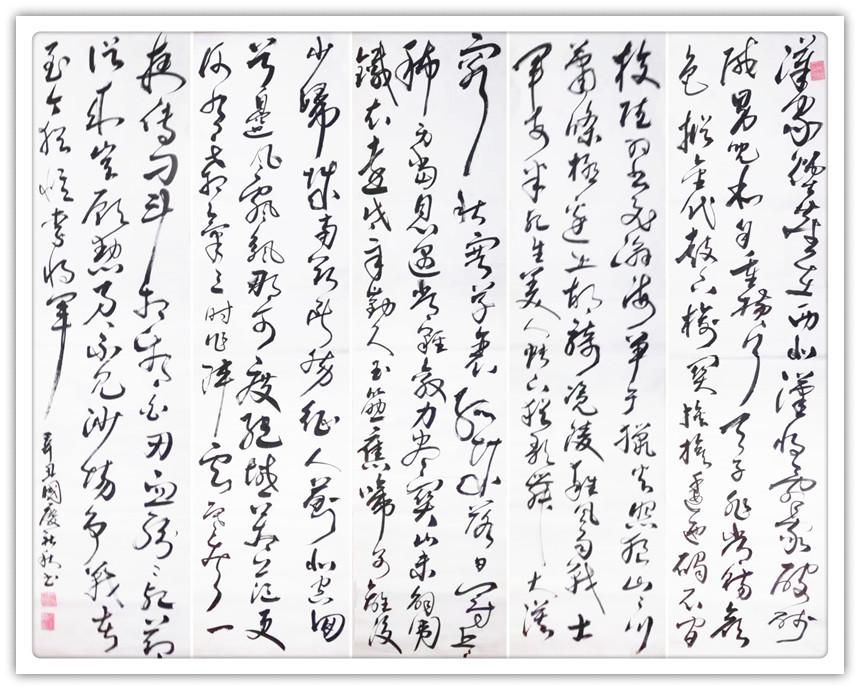 漢家煙塵在西北漢將辭家破殘
賊男兒本自重橫行天子非常賜顏
色摐金伐鼓下榆關旌旆逶迤碣石間
校尉羽書飛瀚海單于獵火照狼山山川
蕭條極邊土胡騎憑陵雜風雨戰士
軍前半死生美人帳下猶歌舞大漠
窮秋塞草衰孤城落日鬥兵
稀身當恩遇常輕敵力盡關山未解圍
鐵衣遠戍辛勤久玉筯應啼別離後
少婦城南欲斷腸征人薊北空回
首邊風飄飄那可度絕域蒼茫更
何有殺氣三時作陣雲寒聲一
夜傳刁斗相看白刃血紛紛死節
從來豈顧勳君不見沙場爭戰苦
至今猶憶李將軍
辛丑國慶書